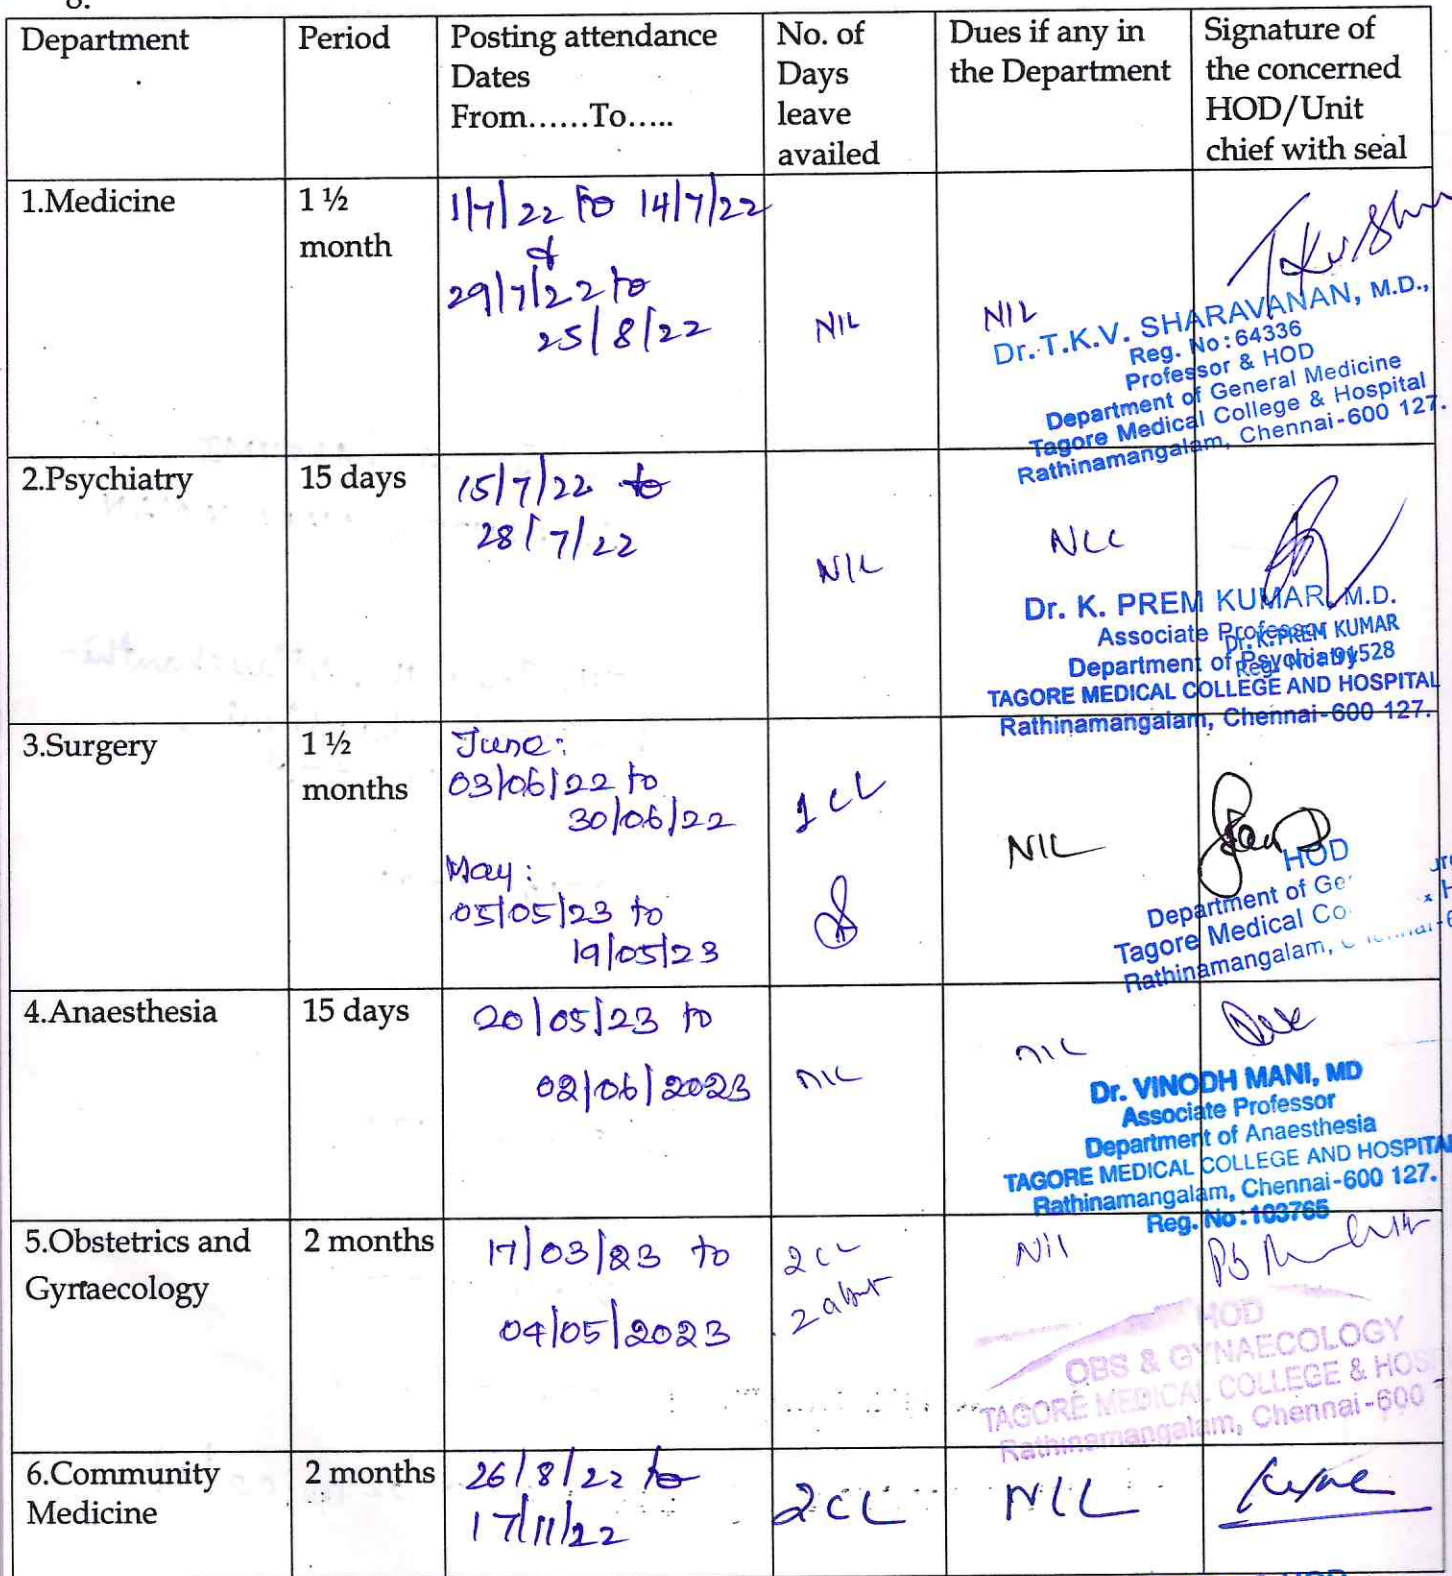 Department
Period
Posting attendance
Dates
From......To.....
No. of
Days
leave
availed
Dues if any in
the Department
Signature of
the concerned
HOD/Unit
chief with seal
1.Medicine
1 ½
month
1/7/22 to 14/7/22
&
29/7/22 to
25/8/22
NIL
NIL
Dr. T.K.V. SHARAVANAN, M.D.,
Reg. No: 64336
Professor & HOD
Department of General Medicine
Tagore Medical College & Hospital
Rathinamangalam, Chennai-600 127.
2.Psychiatry
15 days
15/7/22 to
28/7/22
NIL
NIL
Dr. K. PREM KUMAR M.D.
Associate Professor
Dr. K. PREM KUMAR
Department of Psychiatry
Reg. No: 91528
TAGORE MEDICAL COLLEGE AND HOSPITAL
Rathinamangalam, Chennai-600 127.
3.Surgery
1 ½
months
June:
03/06/22 to
30/06/22
May:
05/05/23 to
19/05/23
1 CL
NIL
HOD
Department of Ge
Tagore Medical Co
Rathinamangalam,
4.Anaesthesia
15 days
20/05/23 to
02/06/2023
NIL
NIL
Dr. VINODH MANI, MD
Associate Professor
Department of Anaesthesia
TAGORE MEDICAL COLLEGE AND HOSPITAL
Rathinamangalam, Chennai-600 127.
Reg. No: 103765
5.Obstetrics and
Gynaecology
2 months
17/03/23 to
04/05/2023
2 CL
2
Nil
HOD
OBS & GYNAECOLOGY
TAGORE MEDICAL COLLEGE & HOS
Rathinamangalam, Chennai-600
6.Community
Medicine
2 months
26/8/22 to
17/11/22
2 CL
NIL